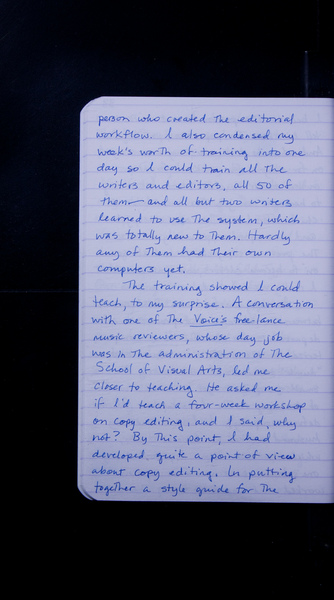 person who created the editorial
workflow. I also condensed my
week's worth of training into one
day so I could train all the
writers and editors, all 50 of
them—and all but two writers
learned to use the system, which
was totally new to them. Hardly
any of them had their own
computers yet.
The training showed I could
teach, to my surprise. A conversation
with one of the Voice's free-lance
music reviewers, whose day job
was in the administration of the
School of Visual Arts, led me
closer to teaching. He asked me
if I'd teach a four-week workshop
on copy editing, and I said, why
not? By this point, I had
developed quite a point of view
about copy editing. In putting
together a style guide for the